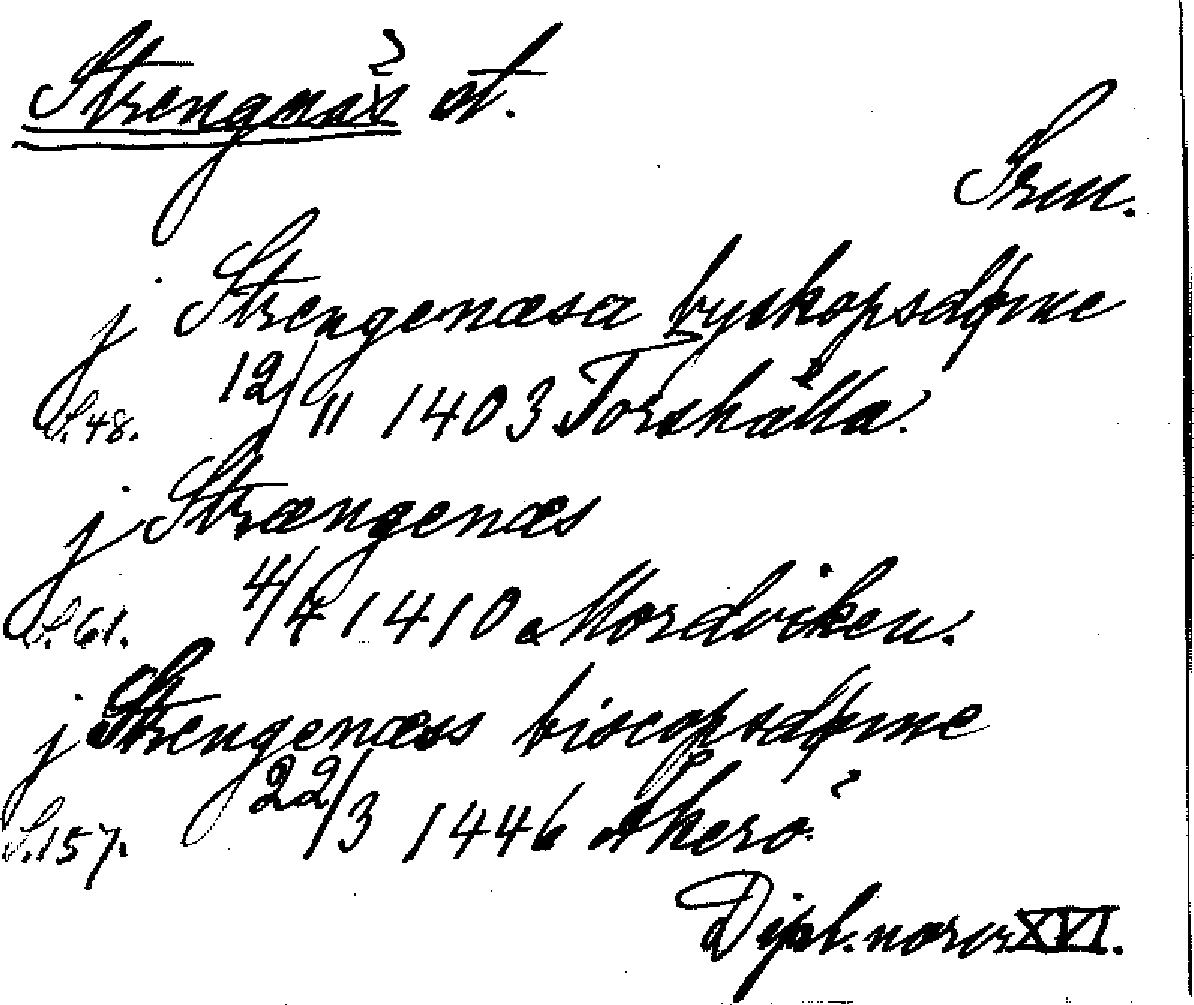 Strengnäs st.
Srm.
j Strengenæsa byskopsdøme
S. 48. 12/11 1403 Torshälla.
j Strængenæs
S. 61. 4/4 1410 Mordviken.
j Strengenæss biscopsdøme
S. 157. 22/3 1446 Åkerö.
Dipl. norv XVI.